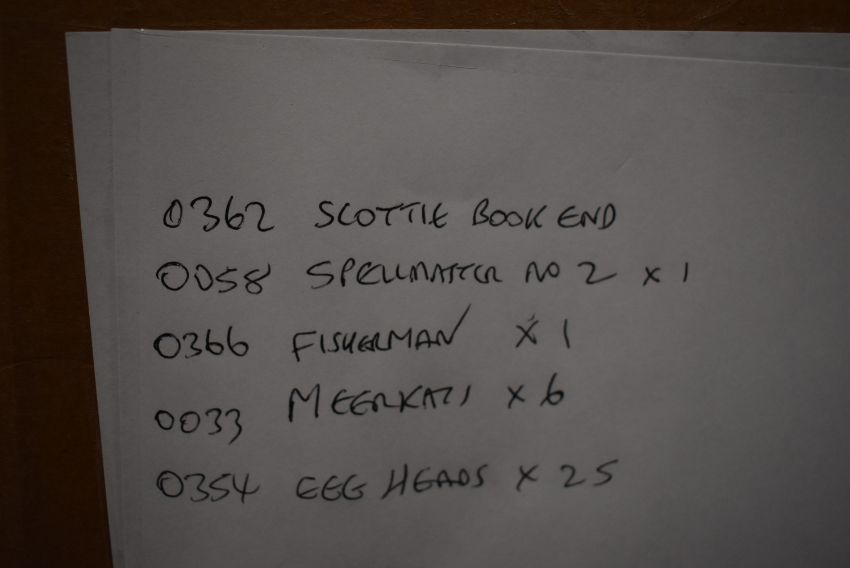 0362 SCOTTIE BOOK END
0058 SPELLMASTER NO 2 x 1
0366 FISHERMAN x 1
0033 MEERKATS x 6
0354 EGG HEADS x 25